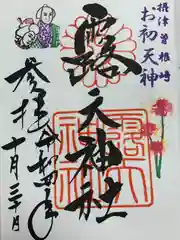 摂津曽根崎
お初天神
露天神社
参拝
令和四年
十月三十日